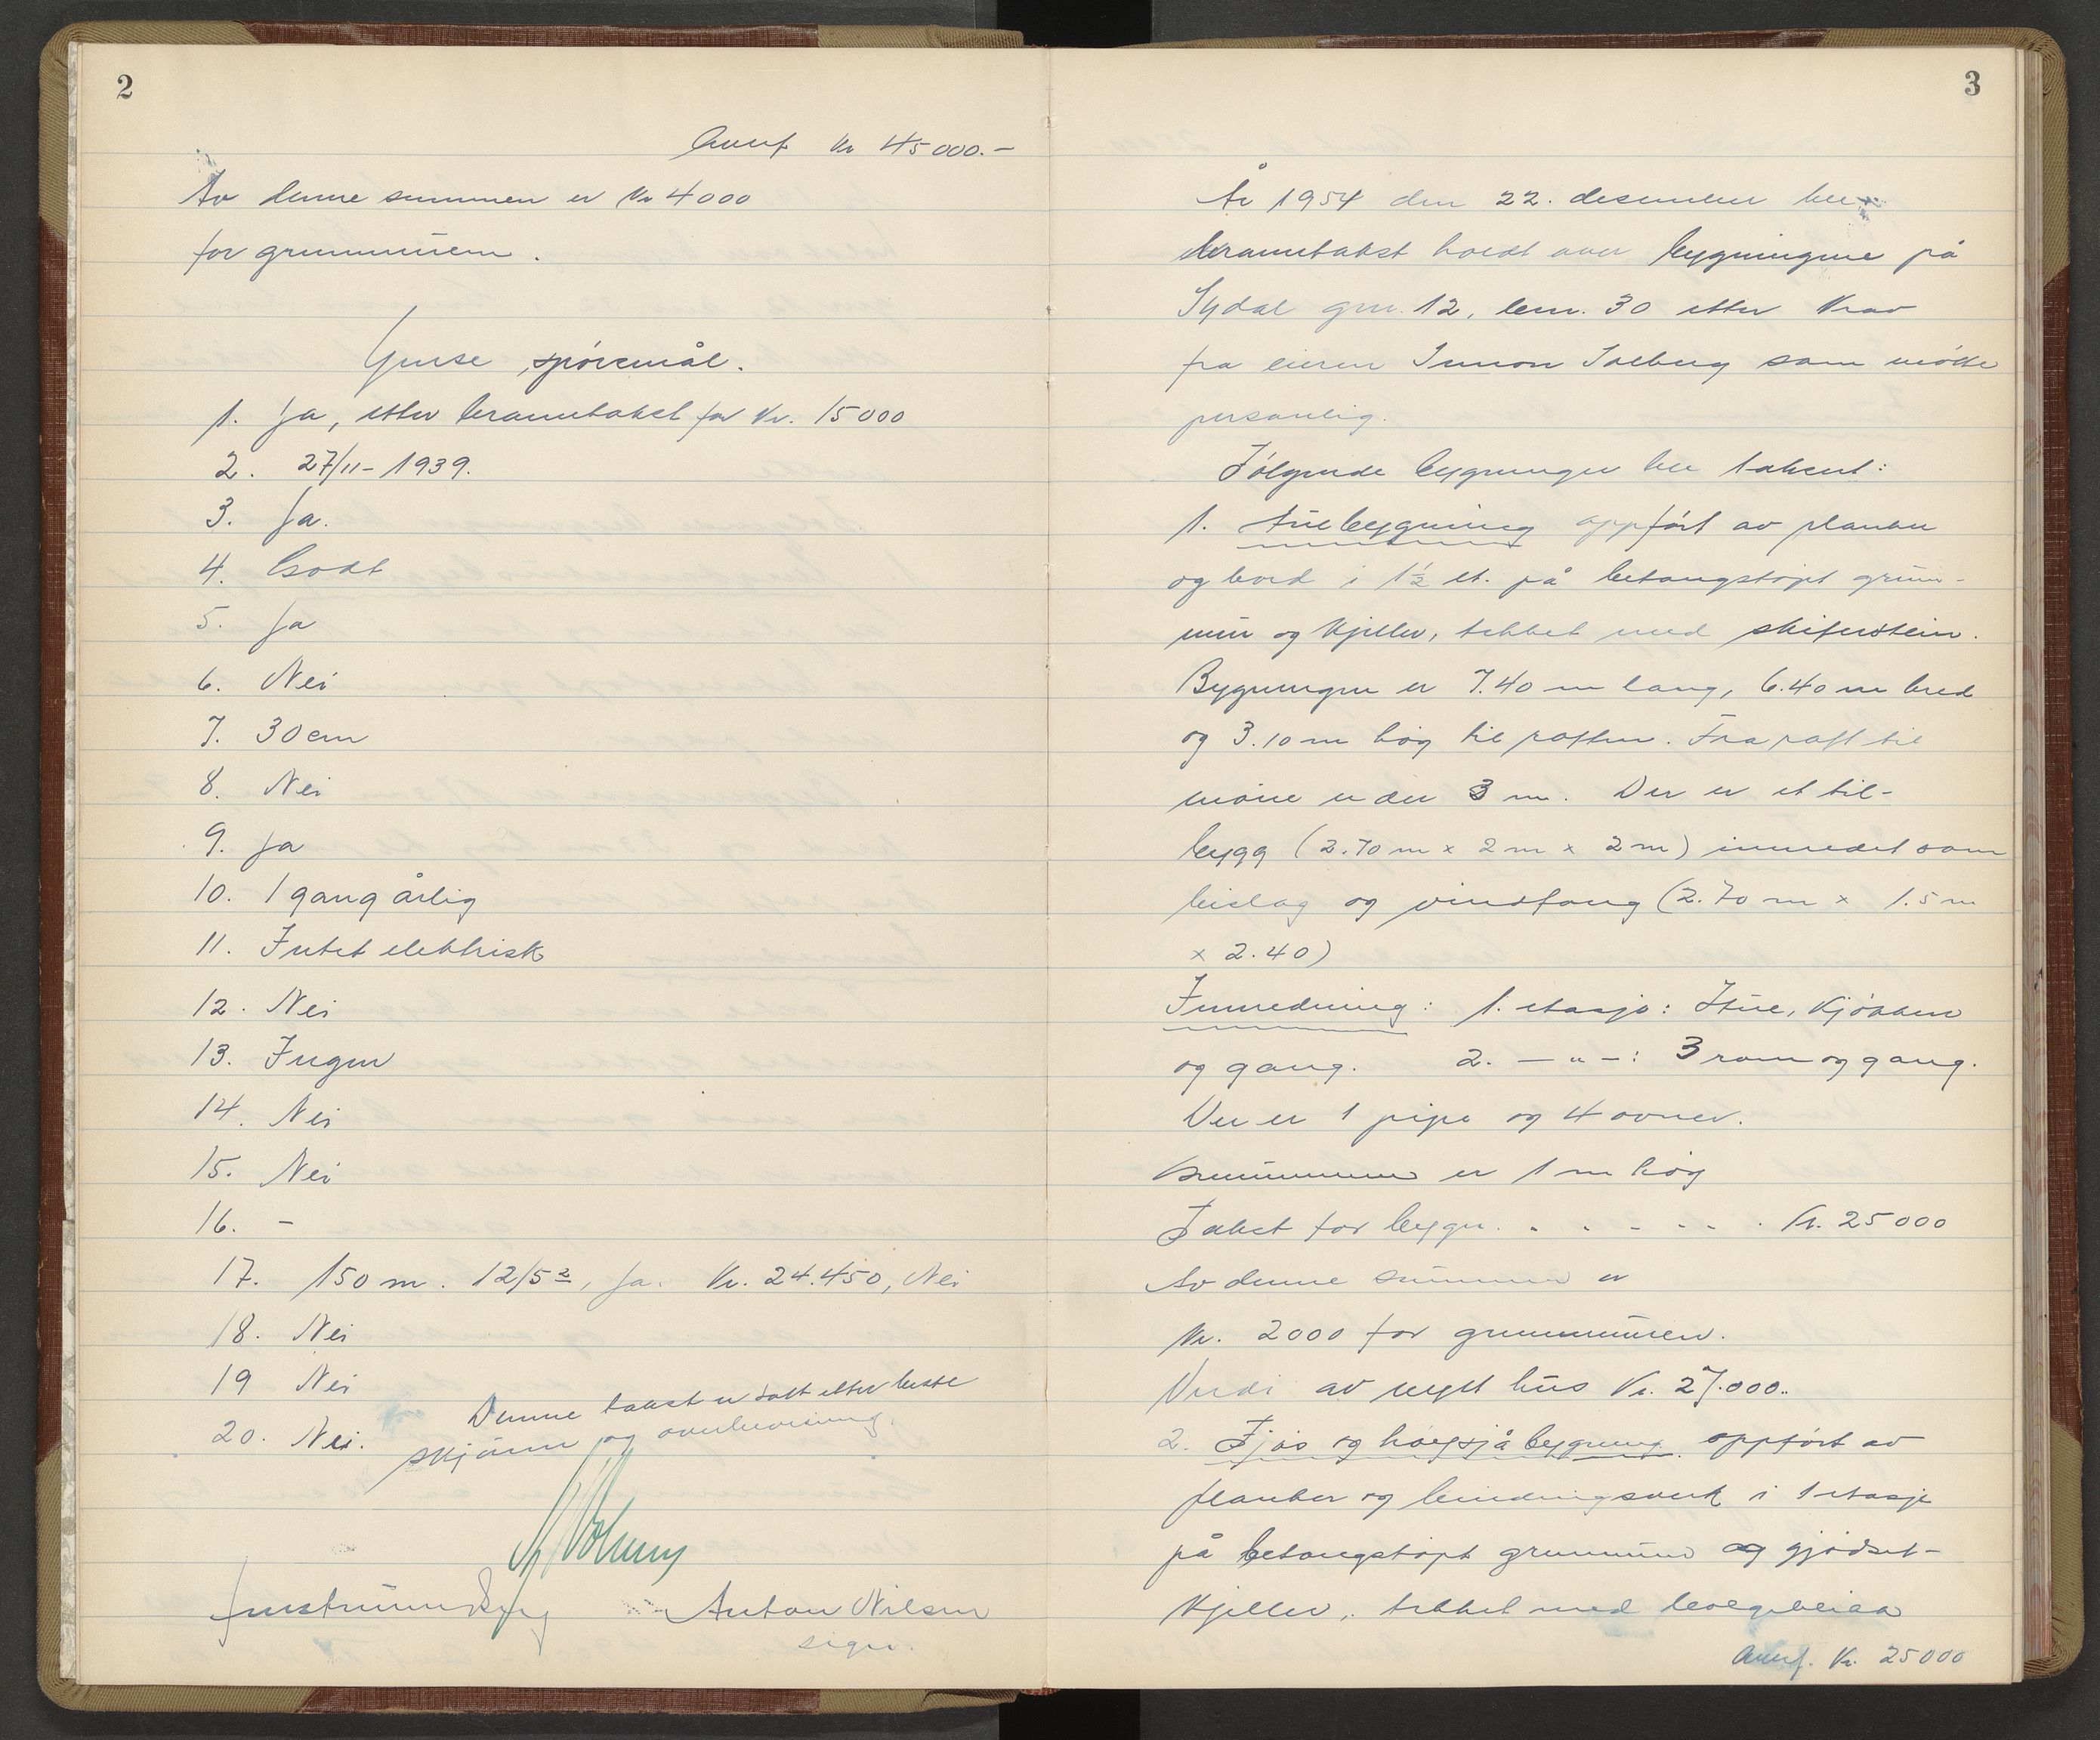 2
Overf. Kr 45000.-
Av denne summen er Kr 4000
for grunnmuren.
Ymse spörsmål.
1. Ja, etter branntakst for Kr. 15000
2. 27/11-1939.
3. Ja.
4. Godt
5. Ja
6. Nei
7. 30 cm
8. Nei
9. Ja
10. 1 gang årlig
11. Intet elektrisk
12. Nei
13. Ingen
14. Nei
15. Nei
16. -
17. 150 m. 12/5 2, Ja. Kr. 24.450, Nei
18. Nei
19 Nei
20. Nei.
Denne takst er satt etter beste
skjönn og overbevisning.
Anton Nilsen
sign.
3
År 1954 den 22. desember ble
branntakst holdt over bygningene på
Sydal gnr. 12, bnr. 30 etter krav
fra eieren Simon Solberg som mötte
personlig.
Fölgende bygninger ble taksert:
1. Stuebygning oppfört av planker
og bord i 1½ et. på betongstöpt grunn-
mur og kjeller, tekket med skiferstein.
Bygningen er 7.40 m lang, 6.40 m bred
og 3.10 m hög til raften. Fra raft til
möne er der 3 m. Der er et til-
bygg (2.70 m x 2 m x 2 m) innredet som
bislag og vindfang (2.70 m x 1.5 m
x 2.40)
Innredning: 1. etasje: Stue, kjökken
og gang. 2. - " - : 3 rom og gang.
Der er 1 pipe og 4 ovner.
Grunnmuren er 1 m hög
Takst for bygn. . . . . . . Kr. 25000
Av denne summen er
Kr. 2000 for grunnmuren.
Verdi av nytt hus Kr. 27.000..
2. Fjös og höysjåbygning oppfört av
planker og bindingsverk i 1 etasje
på betongstöpt grunnmur og gjödsel-
kjeller, tekket med bölgeblikk
Overf. Kr. 25000